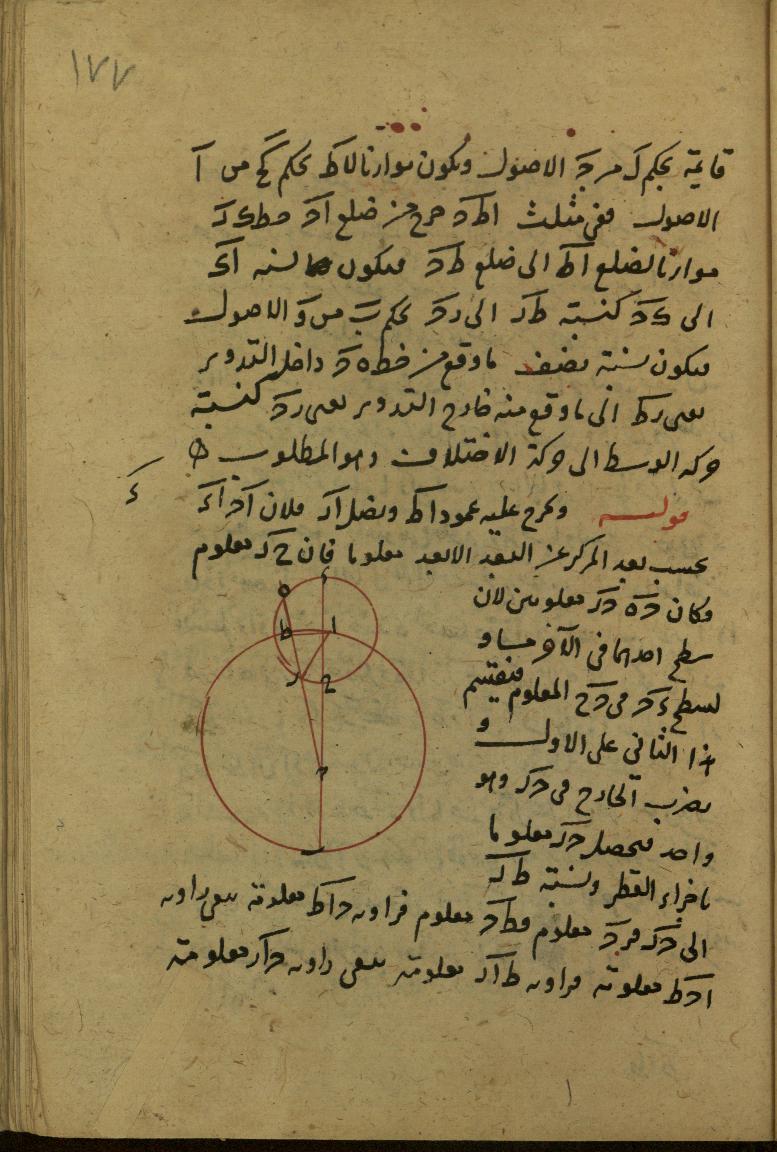 ١٧٧
قايمة بحكم ل من ج الاصول ويكون موازيا لاط بحكم كح من ا
الاصول ففى مثلث اطد خرج من ضلع اد خط كر
موازيا لضلع اط الى ضلع طد فيكون نسبة اك
الى كد كنسبة طر الى رد بحكم ب من و الاصول
فيكون نسبة نصف ما وقع من خط ه د داخل التدوير
يعنى رط الى ما وقع منه خارج التدوير يعنى رد كنسبة
حركة الوسط الى حركة الاختلاف وهو المطلوب
قوله ونخرج عليه عمود اط ونصل ار فلان اد اء
بحسب بعد المركز عن البعد الابعد معلوما فان ح د معلوم
وكان ده در معلومين لان
سطح احدهما فى الآخر مساو
لسطح ءد فى دح المعلوم فنقسم
هذا الثانى على الاول و
نضرب الخارج فى در وهو
واحد فيحصل در معلوما
باجزاء القطر ونسبة طر
الى در معلوم فطد معلوم فزاويه داط معلومة يبقى زاويه
ادط معلومة فزاويه طار معلومة يبقى زاويه دار معلومة
ء
ه
ط
ا
ر
ح
د
ب